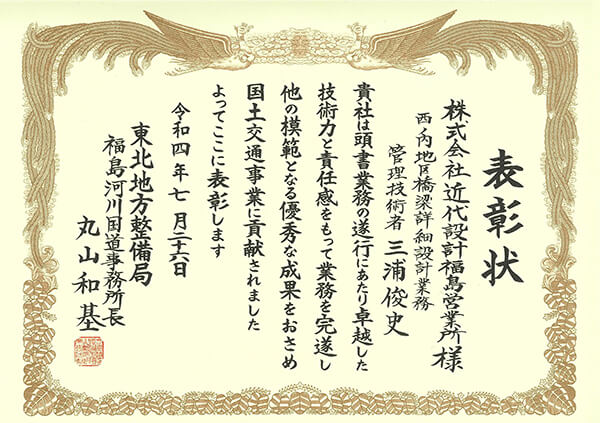 表彰状
株式会社近代設計福島営業所様
西ノ内地区橋梁詳細設計業務
管理技術者 三浦俊史
貴社は頭書業務の遂行にあたり卓越した
技術力と責任感をもって業務を完遂し
他の模範となる優秀な成果をおさめ
国土交通事業に貢献されました
よってここに表彰します
令和四年七月二十六日
東北地方整備局
福島河川国道事務所長
丸山和基